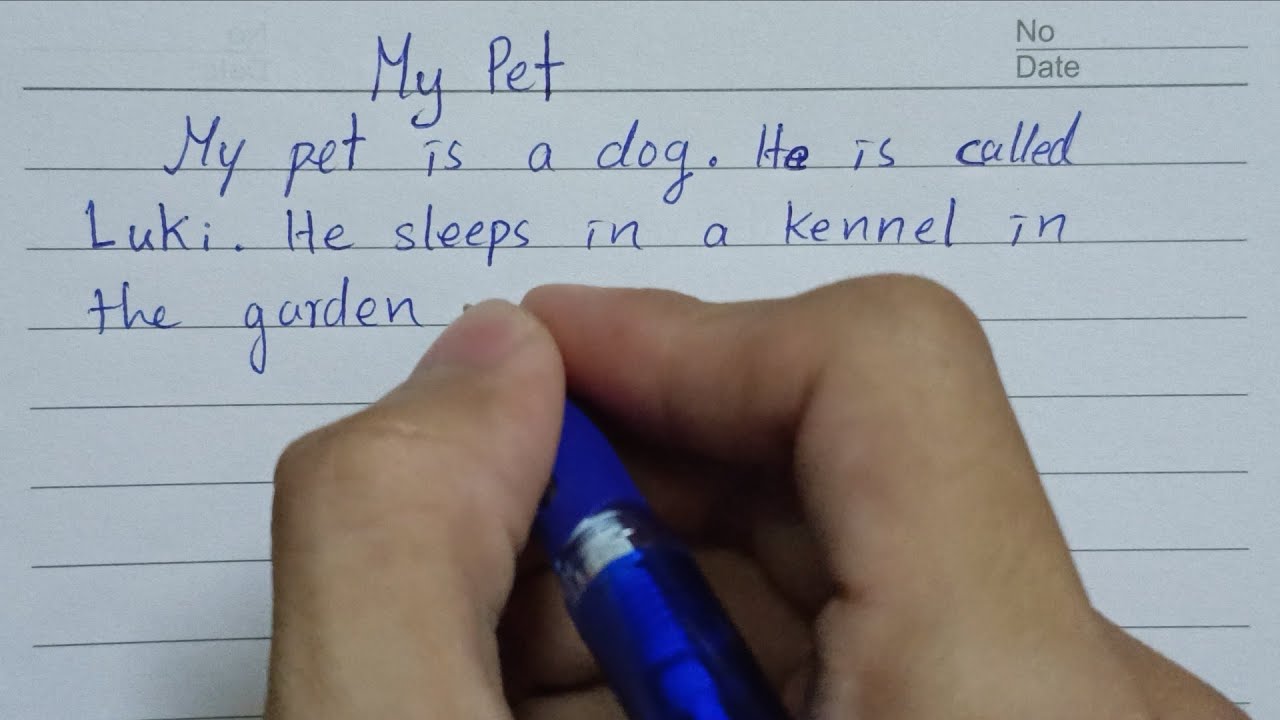 No
Date
My Pet
My pet is a dog. He is called
Luki. He sleeps in a kennel in
the garden